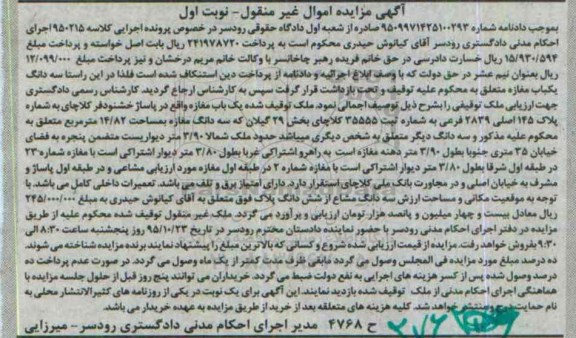 آگهی مزایده اموال غیر منقول- نوبت اول
بموجب دادنامه شماره ۹۵۰۹۹۷۱۴۲۵۱۰۰۲۹۳ صادره از شعبه اول دادگاه حقوقی رودسر در خصوص پرونده اجرایی کلاسه ۹۵۰۲۱۵ اجرای
احکام مدنی دادگستری رودسر آقای کیانوش حیدری محکوم است به پرداخت ۲۴۱۹۷۸۷۲۰ ریال بابت اصل خواسته و پرداخت مبلغ
۱۵/۹۳۰/۵۹۴ ریال خسارت دادرسی در حق خانم فریده رهبر چاخانسر با وکالت خانم مریم درخشان و نیز پرداخت مبلغ ۱۲/۰۹۹/۰۰۰
ریال بعنوان نیم عشر در حق دولت که با وصف ابلاغ اجرائیه و دادنامه از پرداخت دین استنکاف شده است فلذا در این راستا سه دانگ
یکباب مغازه متعلق به محکوم علیه توقیف و تحت بازداشت قرار گرفت سپس به کارشناس ارجاع گردید. کارشناس رسمی دادگستری
جهت ارزیابی ملک توقیفی را بشرح ذیل توصیف اجمالی نمود. ملک توقیف شده یک باب مغازه واقع در پاساژ خشنودفر کلاچای به شماره
پلاک ۱۴۵ اصلی ۲۸۳۹ فرعی به شماره ثبت ۳۵۵۵۵ کلاچای بخش ۲۹ گیلان که سه دانگ مغازه بمساحت ۱۴/۸۲ مترمربع متعلق به
محکوم علیه مذکور و سه دانگ دیگر متعلق به شخص دیگری میباشد حدود ملک شمالا ۳/۹۰ متر دیواریست متضمن پنجره به فضای
خیابان ۳۵ متری جنوبا بطول ۳/۹۰ متر دهنه مغازه است به راهرو اشتراکی غربا بطول ۳/۸۰ متر دیوار اشتراکی است با مغازه شماره ۲۳
در طبقه اول شرقا بطول ۳/۸۰ متر دیوار اشتراکی است با مغازه شماره ۲ در طبقه اول مغازه مورد ارزیابی مشاعی و در طبقه اول پاساژ و
مشرف به خیابان اصلی و در مجاورت بانک ملی کلاچای استقرار دارد. دارای امتیاز برق و تلف می باشد. تعمیرات داخلی کامل می باشد. با
توجه به موقعیت مکانی و مساحت ارزش سه دانگ مشاع از شش دانگ پلاک فوق متعلق به آقای کیانوش حیدری به مبلغ ۲۴۵/۰۰۰/۰۰۰
ریال معادل بیست و چهار میلیون و پانصد هزار تومان ارزیابی و برآورد می گردد. ملک غیر منقول توقیف شده محکوم علیه از طریق
مزایده در دفتر اجرای احکام مدنی رودسر با حضور نماینده دادستان محترم رودسر در تاریخ ۹۵/۱۰/۲۳ روز پنجشنبه ساعت ۸:۳۰ الی
۹:۳۰ بفروش خواهد رفت. مزایده از قیمت ارزیابی شده شروع و کسانی که بالاترین مبلغ را پیشنهاد نمایند برنده مزایده شناخته می شوند.
ده درصد مبلغ مورد مزایده فی المجلس وصول می گردد مابقی ظرف مدت کمتر از یک ماه وصول می گردد. در صورت عدم پرداخت ده
درصد وصول شده پس از کسر هزینه های اجرایی به نفع دولت ضبط می گردد. خریداران می توانند پنج روز قبل از حلول جلسه مزایده با
هماهنگی اجرای احکام مدنی از ملک توقیف شده بازدید نمایند. این آگهی برای یک نوبت در یکی از روزنامه های کثیرالانتشار محلی به
نام حمایت درج و منتشر خواهد شد. کلیه هزینه های متعلقه بعد از خرید از طریق مزایده به عهده خریدار می باشد.
ح ۴۷۶۸ مدیر اجرای احکام مدنی دادگستری رودسر- میرزایی